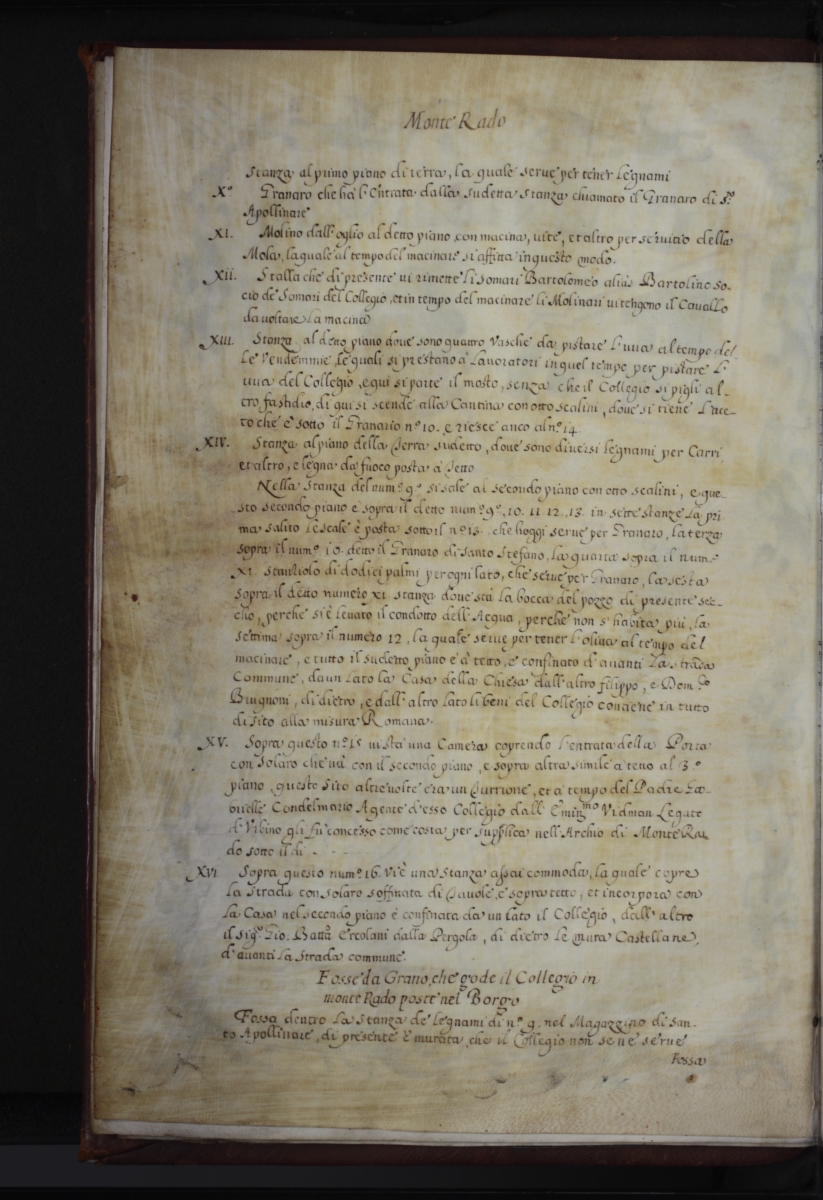 Monte Rado
Stanza al primo piano di terra, la quale serve per tener legnami
X.º Granaro che ha l'Entrata dalla sudetta stanza chiamato il Granaro di S.º
Apollinare
XI. Molino dall'oglio al detto piano con macina, vite, et altro per servitio della
Mola, la quale al tempo del macinare si affitta in questo modo.
XII. Stalla che di presente vi rimette li somari Bartolomeo alias Bartolino so-
cio de Somari del Collegio, et in tempo del macinare li Molinari vi tengono il Cavallo
da voltare la macina
XIII. Stanza al detto piano dove sono quattro Vasche da pistare l'uva al tempo del
le Vendemmie, le quali si prestano a Lavoratori in quel tempo per pistare l'
uva del Collegio, e qui si parte il mosto, senza che il Collegio si pigli al-
tro fastidio, di qui si scende alla Cantina con otto scalini, dove si tiene l'ace-
to che è sotto il Granario nº 10. e riesce anco al nº 14
XIV. Stanza al piano della Terra sudetto, dove sono diversi legnami per Carri
et altro, e legna da fuoco posta a Tetto
Nella Stanza del numº 9º si sale al secondo piano con otto scalini, e que-
sto secondo piano è sopra il detto numº 9º. 10. 11. 12. 13. in sette stanze la pri
ma salito le scale è posta sotto il nº 13. che hoggi serve per Granaro, la terza
sopra il numº 10. detto il Granaro di Santo Stefano, la quarta sopra il numº
XI. Stanziolo di dodici palmi per ogni lato, che serve per Granaro, la sesta
sopra il detto numero XI stanza dove sta la bocca del pozzo di presente sec-
cho, perche si è levato il condotto dell'Acqua, perche non s'habita più, la
settima sopra il numero 12, la quale serve per tener l'oliva al tempo del
macinare, e tutto il sudetto piano è a tetto, e confinato d'avanti la strada
Commune, da un lato la Casa della Chiesa dall'altro filippo, e Dom.co
Brugnoni, di dietro, e dall'altro lato li beni del Collegio contiene in tutto
di sito alla misura Romana.
XV. Sopra questo nº 15 vi sta una Camera coprendo l'entrata della Porta
con solaro che va con il secondo piano, e sopra altra simile a tetto al 3.º
piano, questo Sito altre volte era un Turrione, et a tempo del Padre
Condelmario Agente d'esso Collegio dall'Emin.mo Vidman Legato
d'Urbino gli fù concesso come costa per supplica nell'Archio di Monte Ra
do sotto il di - - -
XVI Sopra questo numº 16. vi è una Stanza assai commoda, la quale copre
la Strada con solaro soffittata di Tavole, e sopra tetto, et incorpora con
la Casa nel secondo piano è confinata da un lato il Collegio, dall'altro
il sigº Gio. Batta Ercolani dalla Pergola, di dietro le mura Castellane,
d'avanti la strada commune.
Fosse da Grano, che gode il Collegio in
monte Rado poste nel Borgo
Fossa dentro la Stanza de legnami di nº 9. nel Magazzino di San-
to Apollinare, di presente è murata, che il Collegio non se ne serve
Fossa